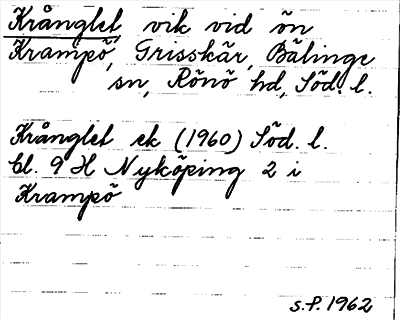 Krånglet, vik vid ön
Krampö, Grisskär, Bälinge
sn, Rönö hd, Söd. l.
Krånglet ek (1960) Söd. l.
bl. 9 H Nyköping 2 i
Krampö
S.P. 1962